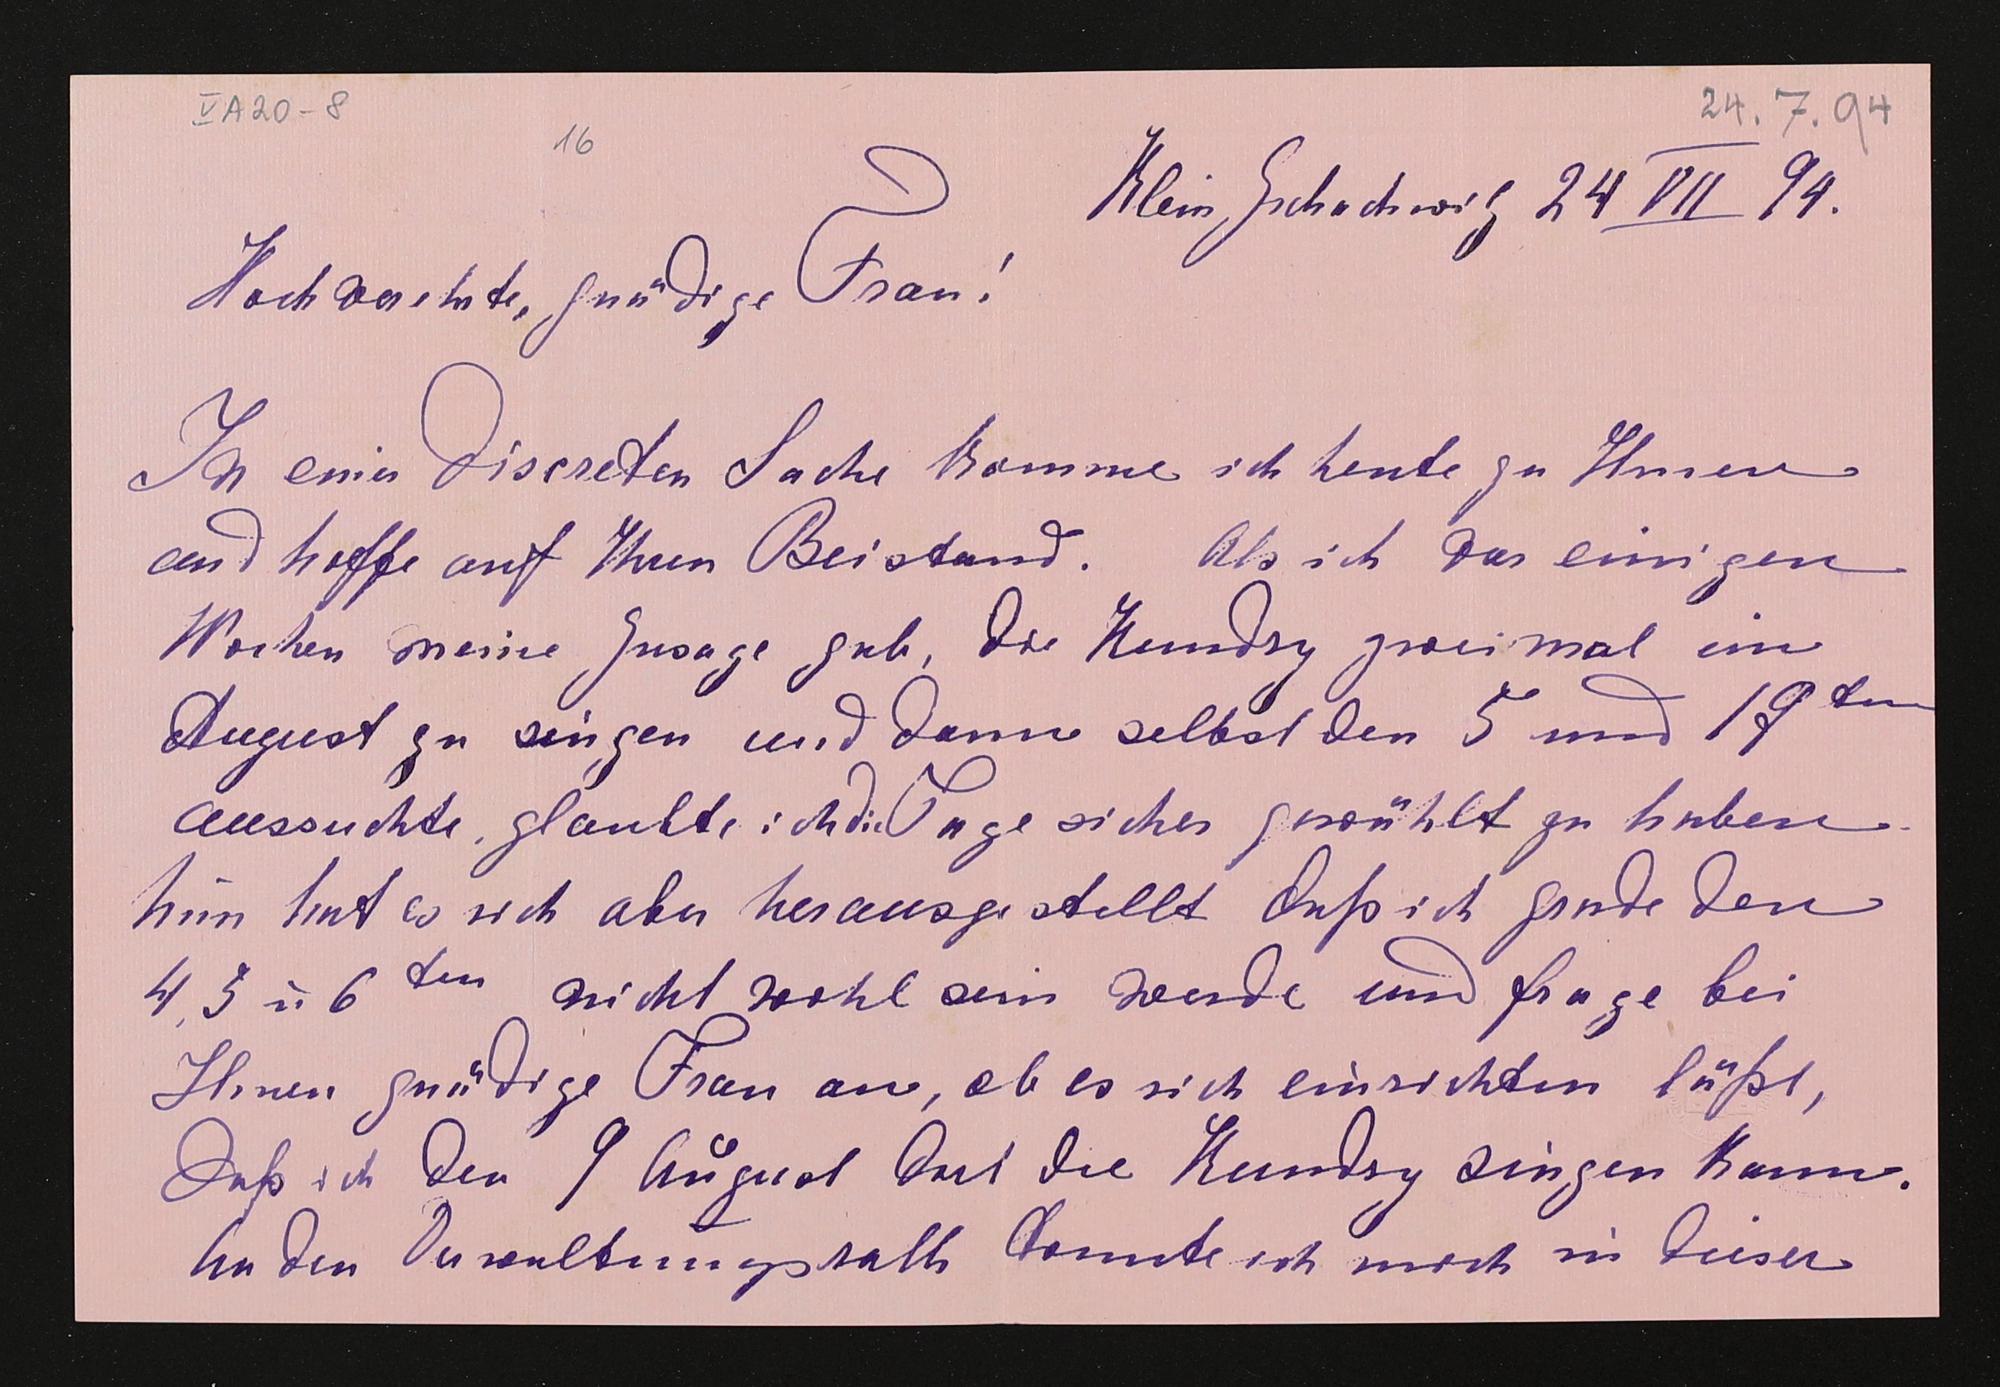 VA20-8
16
24.7.94
Klein Zschachwitz 24 VII 94.
Hochverehrte, gnädige Frau!
In einer discreten Sache komme ich heute zu Ihnen
und hoffe auf Ihren Beistand. Als ich vor einigen
Wochen meine Zusage gab, die Kundry zweimal im
August zu singen und dann selbst den 5 und 19ten
aussuchte, glaubte ich die Tage sicher gewählt zu haben
nun hat es sich aber herausgestellt daß ich grade den
4, 5 u 6ten nicht wohl sein werde und frage bei
Ihnen gnädige Frau an, ob es sich einrichten läßt,
daß ich den 9 August dort die Kundry singen kann.
An den Verwaltungsrath konnte ich mich in dieser